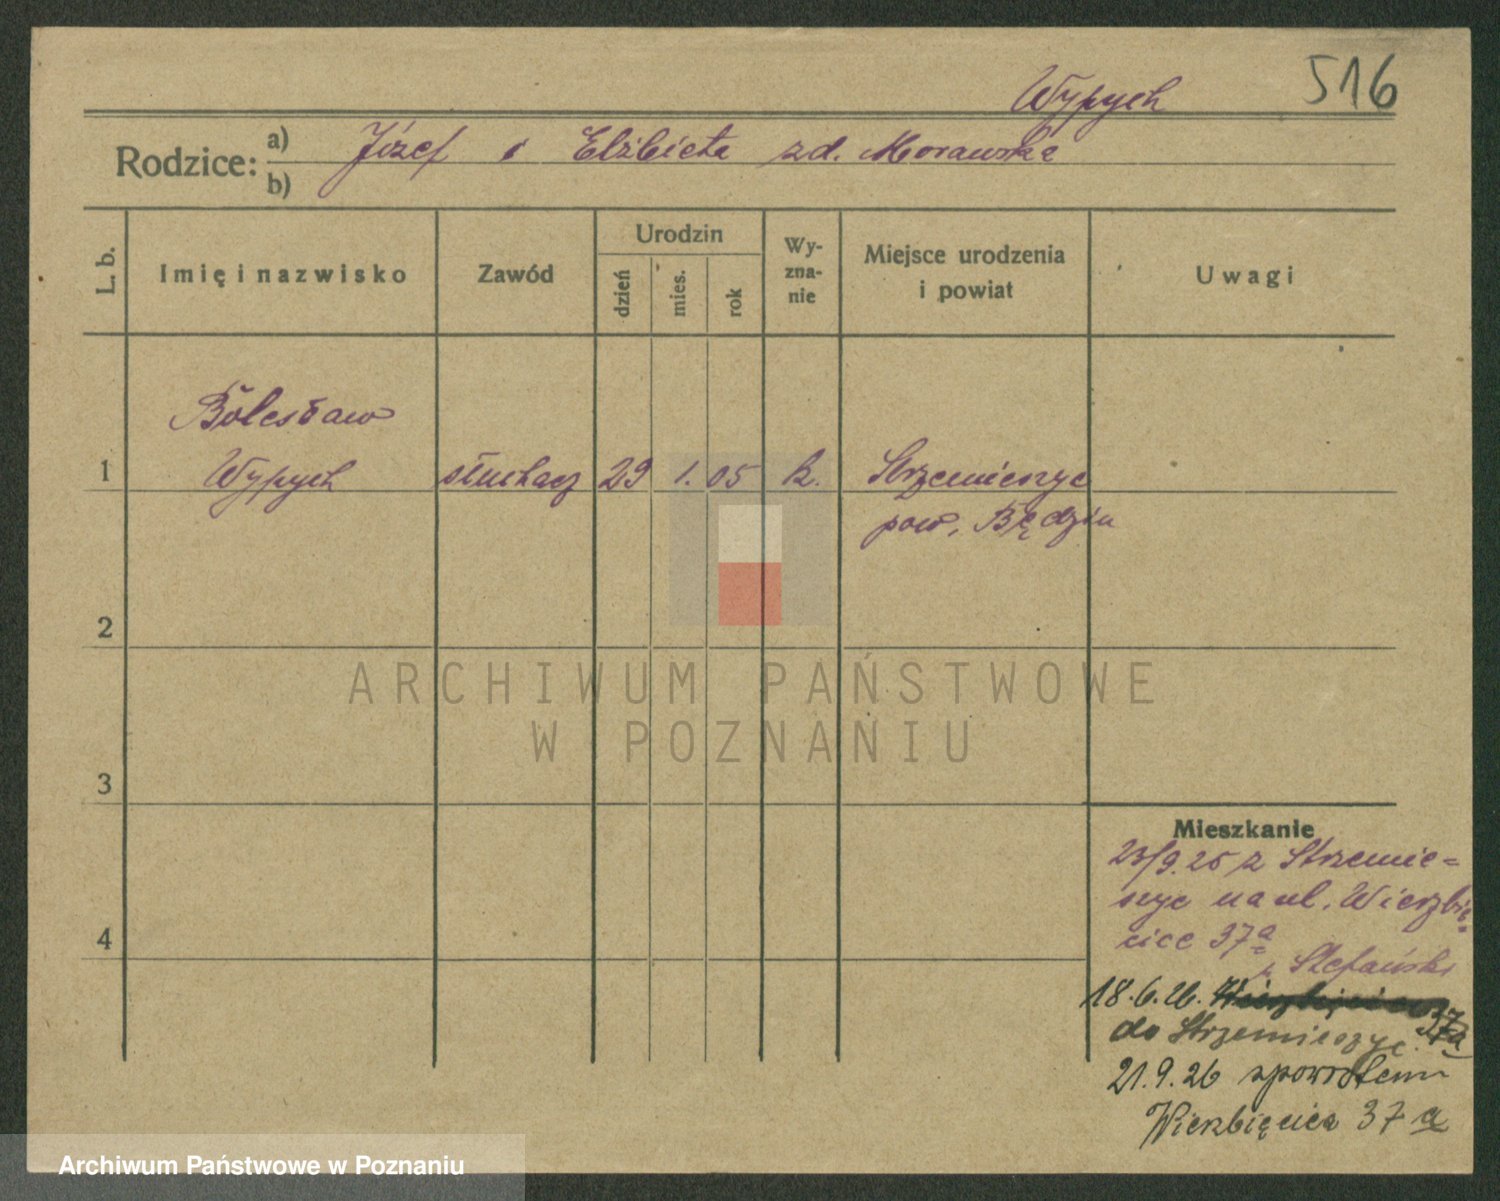 Wypych 516
Rodzice: a) Józef i Elżbieta zd. Morawska
b)
L. b. Imię i nazwisko Zawód Urodzin Wy-
zna-
nie Miejsce urodzenia
i powiat Uwagi
dzień mies. rok
Bolesław
1 Wypych słuchacz 29 1. 05 k. Strzemieszyc
pow. Będzin
2
ARCHIWUM PAŃSTWOWE
W POZNANIU
3
Mieszkanie
23/9.25 z Strzemie=
szyc na ul. Wierzbię=
4 cice 37a
Stefański
18.6.26. 37a
do Strzemieszyc
21.9.26 spowrotem
Wierzbięcica 37a
Archiwum Państwowe w Poznaniu